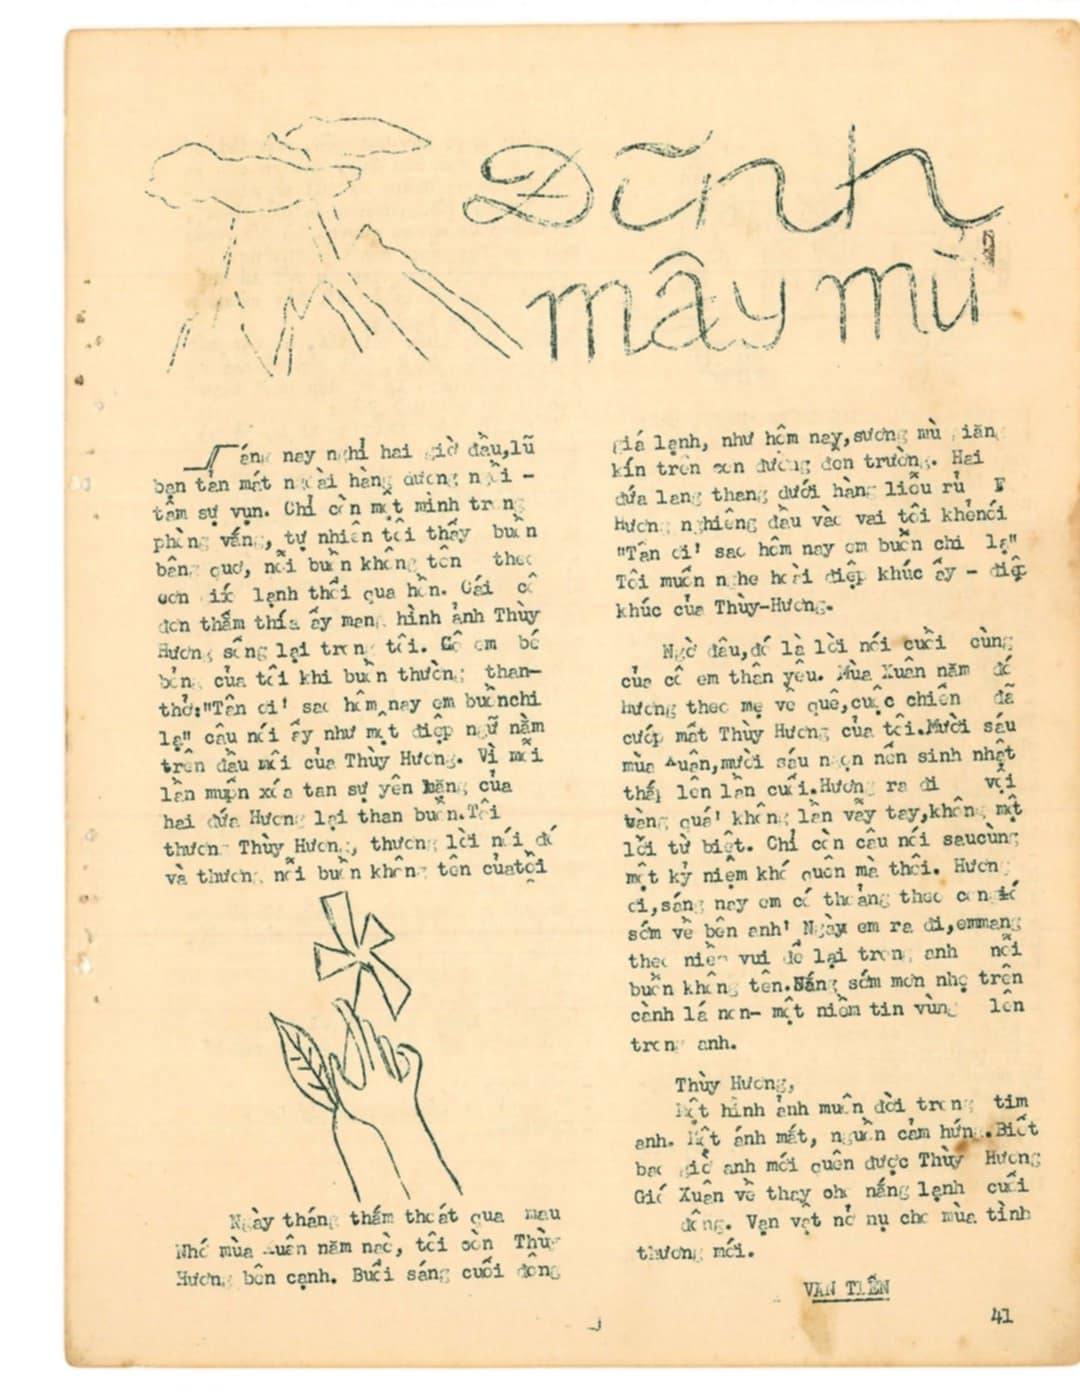 Đĩnh
mây mù
Sáng nay nghỉ hai giờ đầu,lũ
bạn tản mát ngoài hàng dương ngồi -
tâm sự vụn. Chỉ còn một mình trong
phòng vắng, tự nhiên tôi thấy buồn
bâng quơ, nỗi buồn không tên theo
cơn gió lạnh thổi qua hồn. Cái cô
đơn thấm thía ấy mang hình ảnh Thùy
Hương sống lại trong tôi. Cô em bé
bỏng của tôi khi buồn thường than-
thở:"Tân ơi! sao hôm nay em buồnchi
lạ" câu nói ấy như một điệp ngữ nằm
trên đầu môi của Thùy Hương. Vì mỗi
lần muốn xóa tan sự yên lặng của
hai đứa Hương lại than buồn.Tôi
thương Thùy Hương, thương lời nói đó
và thương nỗi buồn không tên củatôi
Ngày tháng thấm thoát qua mau
Nhớ mùa xuân năm nào, tôi còn Thùy
Hương bên cạnh. Buổi sáng cuối đông
giá lạnh, như hôm nay,sương mù giăng
kín trên con đường đến trường. Hai
đứa lang thang dưới hàng liễu rủ
Hương nghiêng đầu vào vai tôi khẻnói
"Tân ơi! sao hôm nay em buồn chi lạ"
Tôi muốn nghe hoài điệp khúc ấy - điệp
khúc của Thùy-Hương.
Ngờ đâu,đó là lời nói cuối cùng
của cô em thân yêu. Mùa Xuân năm đó
hương theo mẹ về quê,cuộc chiến đã
cướp mất Thùy Hương của tôi.Mười sáu
mùa xuân,mười sáu ngọn nến sinh nhật
thắp lên lần cuối.Hương ra đi vội
vàng quá! không lần vẫy tay,không một
lời từ biệt. Chỉ còn câu nói saucùng
một kỷ niệm khó quên mà thôi. Hương
ơi,sáng nay em có thoảng theo cơn gió
sớm về bên anh! Ngày em ra đi,emmang
theo niềm vui để lại trong anh nỗi
buồn không tên.Nắng sớm mơn nhẹ trên
cành lá non- một niềm tin vùng lên
trong anh.
Thùy Hương,
Một hình ảnh muôn đời trong tim
anh. Một ánh mắt, nguồn cảm hứng.Biết
bao giờ anh mới quên được Thùy Hương
Gió Xuân về thay cho nắng lạnh cuối
đông. Vạn vật nở nụ cho mùa tình
thương mới.
VĂN TIẾN
41